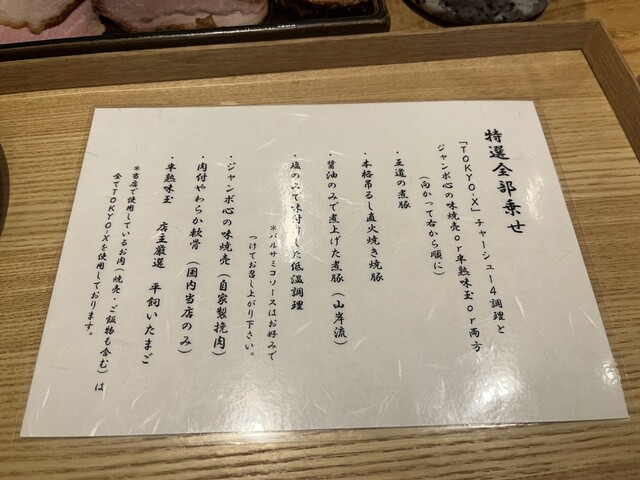 特選全部乗せ
「TOKYO-X」チャーシュー4調理と
ジャンボ心の味焼売or半熟味玉or両方
（向かって右から順に）
・王道の煮豚
・本格吊るし直火焼き焼豚
・醤油のみで煮上げた煮豚（山岸流）
・塩のみで味付けした低温調理
※バルサミコソースはお好みで
つけてお召し上がり下さい。
・ジャンボ心の味焼売（自家製挽肉）
・肉付やわらか軟骨（国内当店のみ）
・半熟味玉 店主厳選 平飼いたまご
※当店で使用しているお肉（焼売・ご飯物も含む）は
全てTOKYO-Xを使用しております。